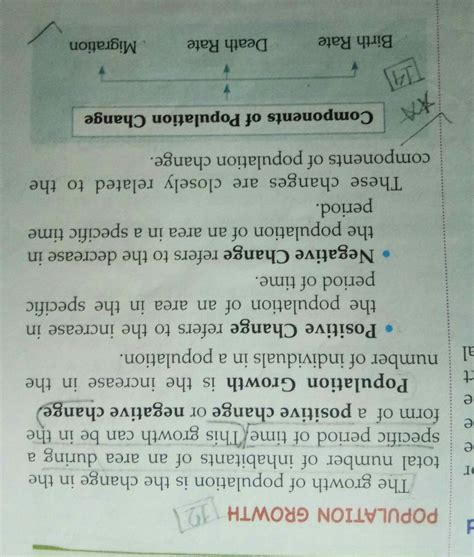 POPULATION GROWTH
The growth of population is the change in the
total number of inhabitants of an area during a
specific period of time. This growth can be in the
form of a positive change or negative change.
Population Growth is the increase in the
number of individuals in a population.
• Positive Change refers to the increase in
the population of an area in the specific
period of time.
• Negative Change refers to the decrease in
the population of an area in a specific time
period.
These changes are closely related to the
components of population change.
Components of Population Change
14
Birth Rate Death Rate Migration